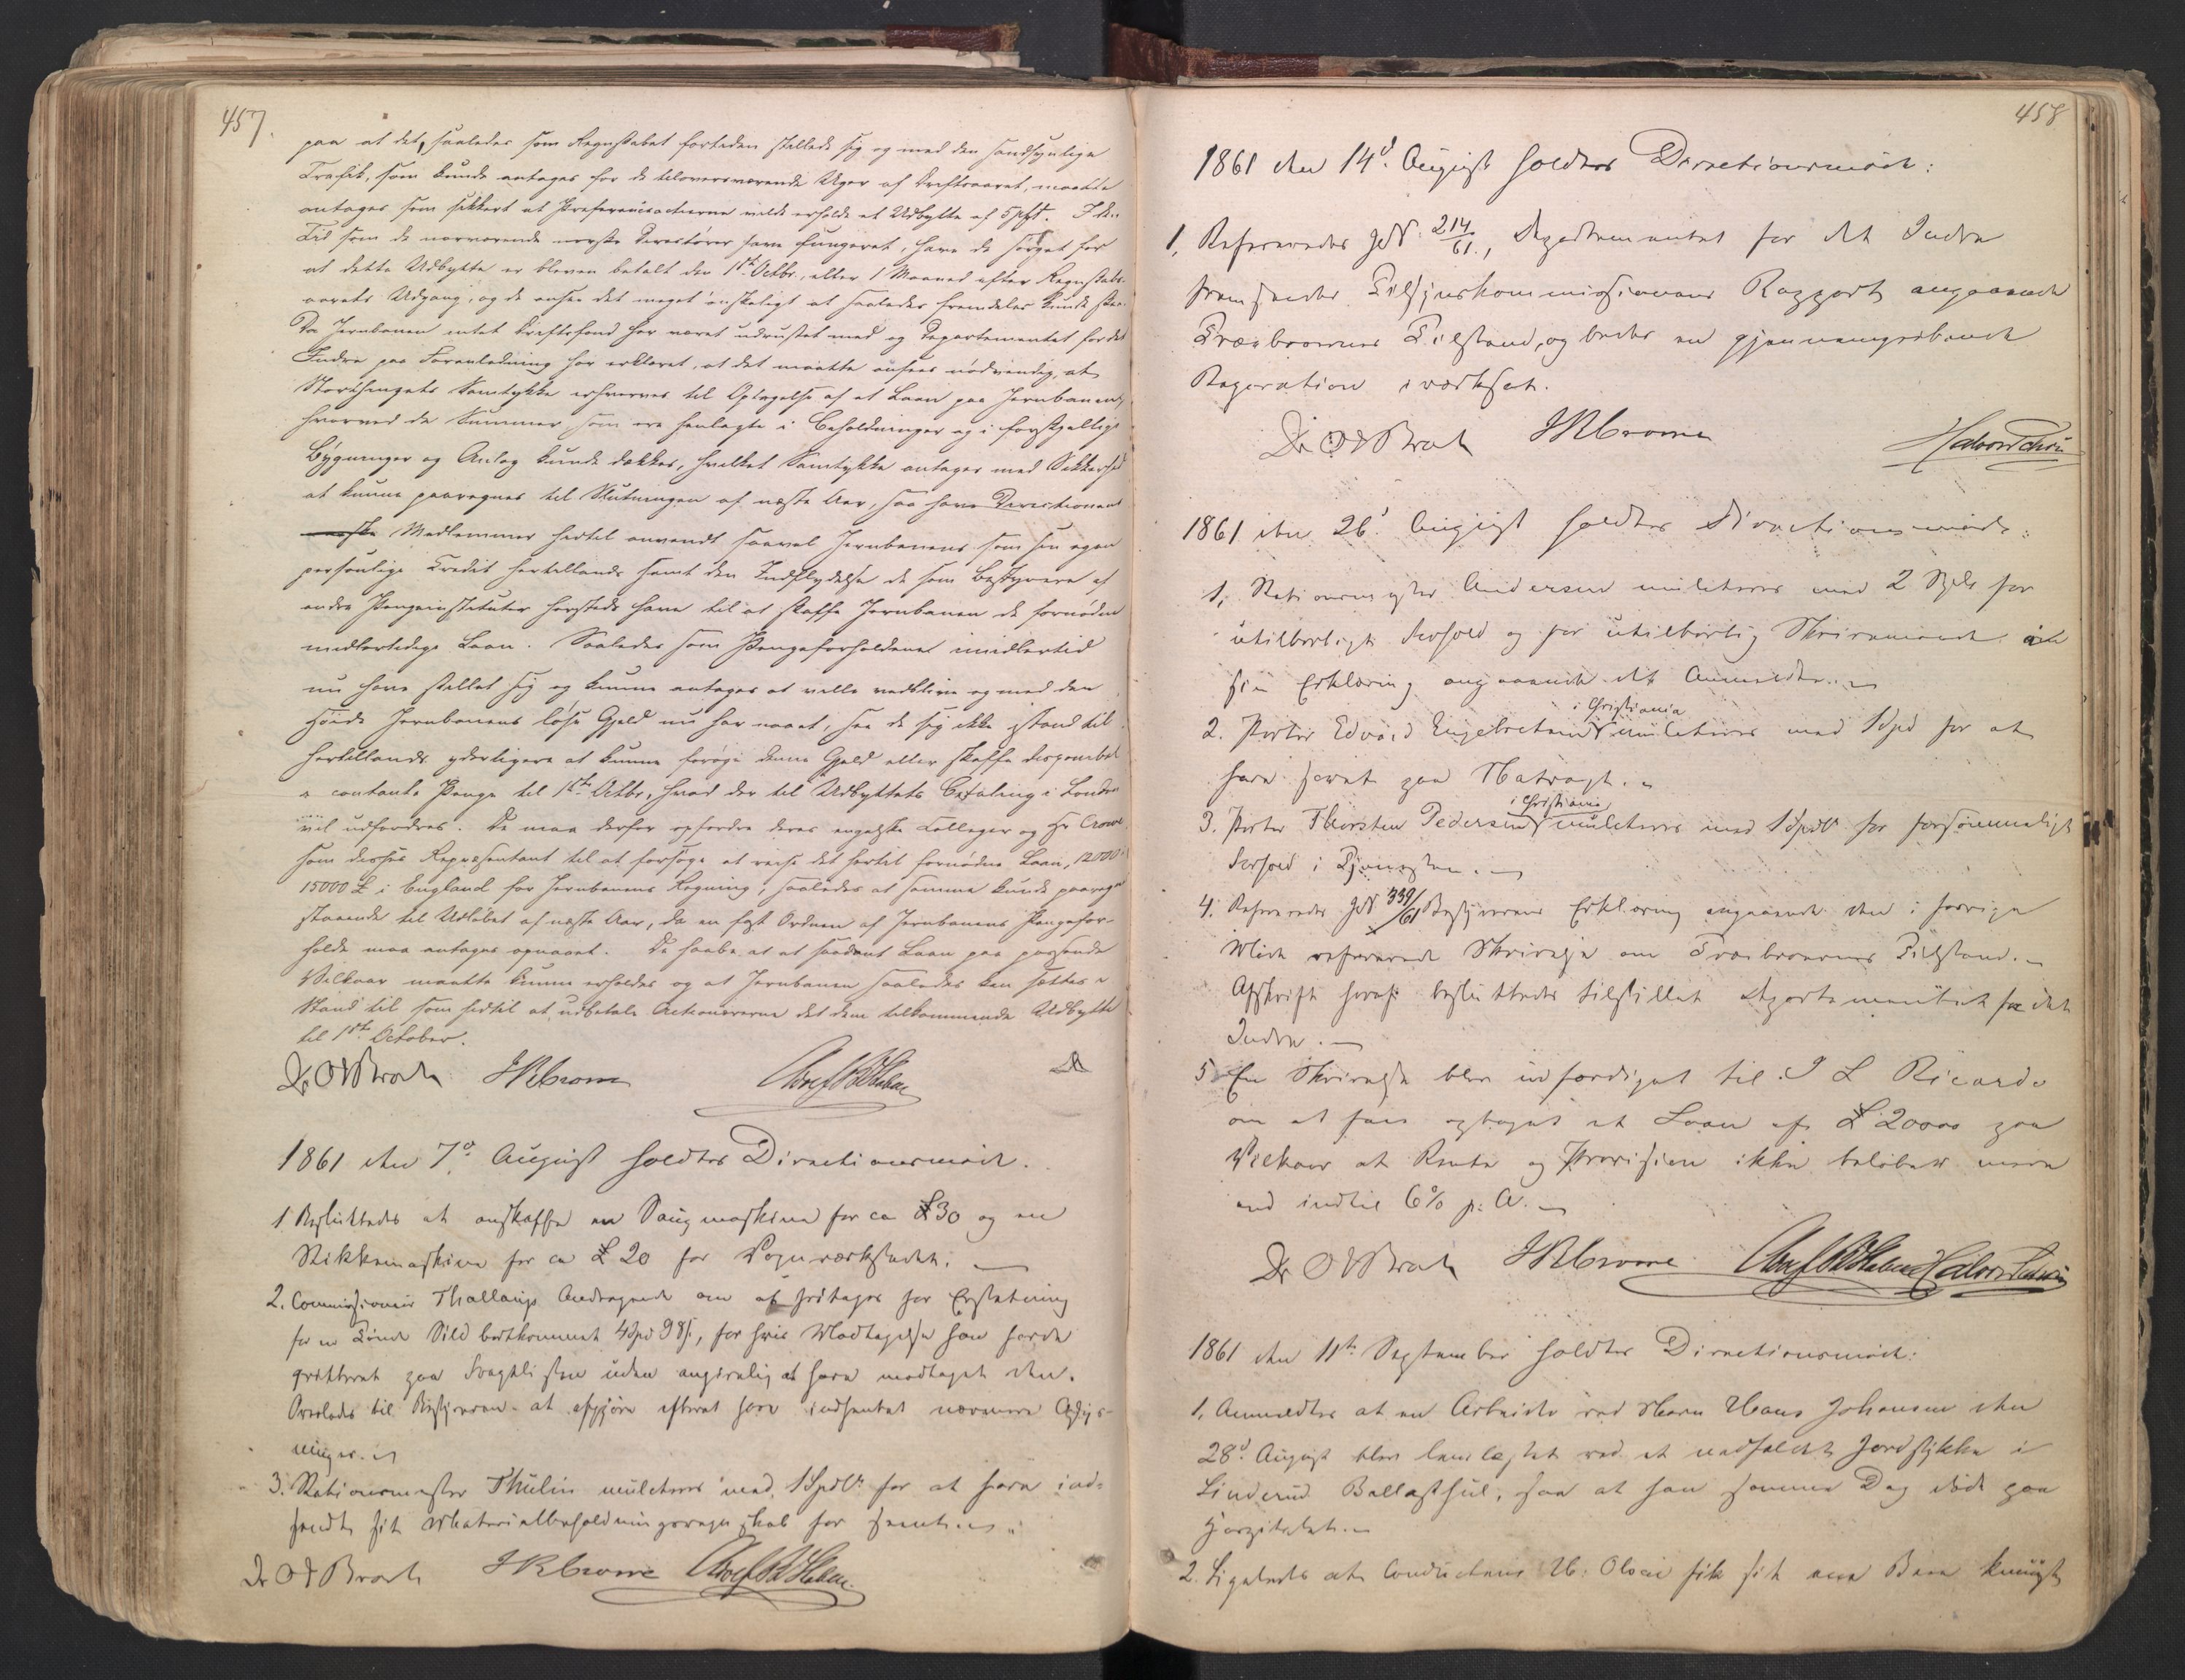 457.
paa at det, saaledes som Regnskabet fortiden stillede sig og med den sandsynlige
Trafik, som kunde antages for de tiloversværende Uger af Driftsaaret, maatte
antages som sikkert at Præferenceactierne vilde erholde et Udbytte af 5 pCt. I den
Tid som de nuværende norske Directører have fungeret, have de sørget for
at dette Udbytte er bleven betalt den 1ste Octbr., eller 1 Maaned efter Regnskabs-
aarets Udgang, og de ansee det meget ønskeligt at saaledes fremdeles kunde skee.
Da Jernbanen intet Driftsfond har været udrustet med og Departementet for det
Indre paa Foranledning har erklæret, at det maatte ansees nødvendig, at
Storthingets Samtykke erhverves til Optagelse af et Laan paa Jernbanen,
hvorved de Summer, som ere henlagte i Beholdninger og i forskjellige
Bygninger og Anlæg kunde dækkes, hvilket Samtykke antages med Sikkerhed
at kunne paaregnes til Slutningen af næste Aar, saa have Directionens
norske Medlemmer hidtil anvendt saavel Jernbanens som sin egen
personlige Credit hertillands samt den Indflydelse de som Bestyrere af
andre Pengeinstituter herstede have til at skaffe Jernbanen de fornødne
midlertidige Laan. Saaledes som Pengeforholdene imidlertid
nu have stillet sig og kunne antages at ville vedblive og med den
Høide Jernbanens løse Gjeld nu har naaet, see de sig ikke istand til
hertillands yderligere at kunne forøge denne Gjeld eller skaffe disponibel
contante Penge til 1ste Octbr., hvad der til Udbyttets Betaling i London
vil udfordres. De maa derfor opfordre deres engelske Colleger og Hr Crowe
som disses Repræsentant til at forsøge at reise det hertil fornødne Laan, 12000
15000 £ i England for Jernbanens Regning, saaledes at samme kunde paaregnes
staaende til Udløbet af næste Aar, da en fast Ordnen af Jernbanens Pengefor-
holde maa antages opnaaet. De haabe at et saadant Laan paa passende
Vilkaar maatte kunne erholdes og at Jernbanen saaledes kan sættes i
Stand til som hidtil at udbetale Actionærerne det dem tilkommende Udbytte
til 1ste October.
Dr O J Broch JRCrowe
1861 den 7d. August holdtes Directionsmøde.
1 Besluttedes at anskaffe en Saugmaskine for ca £30 og en
Stikkemaskine for ca £ 20 for Vognværkstedet.
2. Commissionær Thallaugs Andragende om at fritages for Erstatning
for en Tønde Sild bortkommet 4 Spd 98 s, for hvis Modtagelse han havde
qvitteret paa Fragtlisten uden angivelig at have modtaget den.
Overlodes til Bestyreren at afgjøre efterat have indhentet nærmere Oplys-
ninger.
3. Stationsmester Thulin mulcteres med 1 Spdlr for at have ind-
sendt sit Materialbeholdningsregnskab for seent.
Dr O J Broch JRCrowe
458
1861 den 14d. August holdtes Directionsmøde:
1, Refereredes JN 214/61., Departementet for det Indre
fremsender Tilsynskommissionens Rapport angaaende
Træbroernes Tilstand, og beder en gjennemgribende
Reparation iværksat.
Dr O J Broch JRCrowe
1861 den 26d. August holdtes Directionsmøde:
1, Stationsmester Andersen mulcteres med 2 Spdlr for
utilbørligt Forhold og for utilbørlig Skrivemaade i
sin Erklæring angaaende det Anmeldte.
2. Porter Edvard Engebretsen i Christiania mulcteres med 1 Spd for at
have sovet paa Natvagt.
3. Porter Thorsten Pedersen i Christiania mulcteres med 1 Spdlr for forsømmeligt
Forhold i Tjenesten.
4. Refereredes JN 339/61 Bestyrerens Erklæring angaaende den i forrige
Møde refererede Skrivelse om Træbroernes Tilstand.
Afskrift heraf besluttedes tilstillet Departementet for det
Indre.
5 En Skrivelse blev udfærdiget til J L Ricardo
om at faae optaget et Laan af £ 20000 paa
Vilkaar at Rente og Provision ikke beløber mere
end indtil 6% p: A.
Dr O J Broch JRCrowe
1861 den 11te September holdtes Directionsmøde:
1, Anmeldtes at en Arbeider ved Navn Hans Johansen den
28d August blev lemlæstet ved et nedfaldet Jordstykke i
Linderud Ballasthul, saa at han samme Dag døde paa
Hospitalet.
2. Ligeledes at Conducteur H: Olsen fik sit ene Been knuust